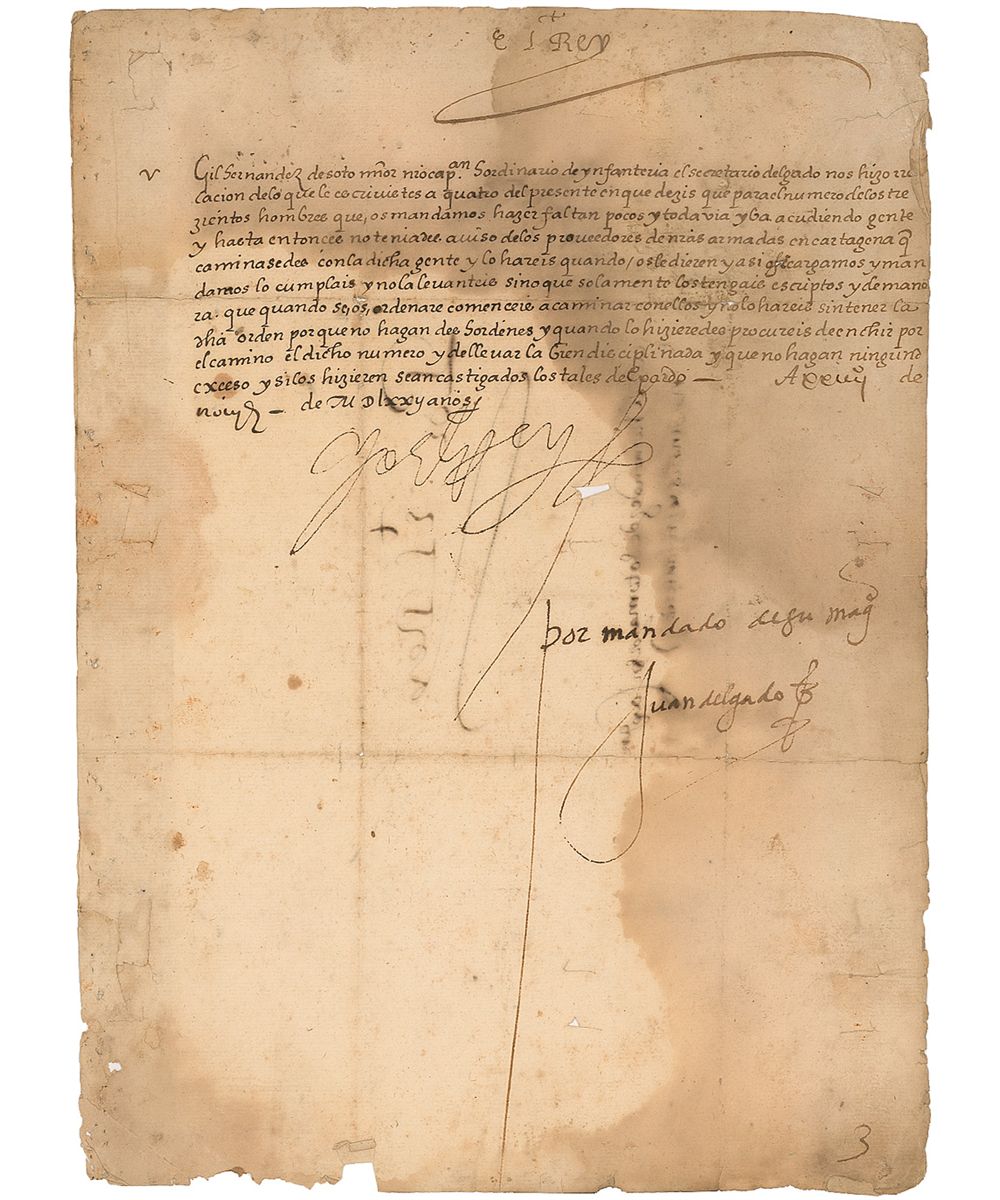 el Rey
Gil hernandez de soto mõor nr̃o cap.an hordinario de ynfanteria el secretario delgado nos hizo rre
lacion de lo que le escrivistes a quatro del presente en que dezis que para el numero de los tre
zientos hombres que, os mandamos hazer faltan pocos y todavia yba acudiendo gente
y hasta entonces no teniades aviso de los proveedores de nr̃as armadas en cartagena q̃
caminasedes con la dicha gente y lo hareis quando / os le dieren y asi os encargamos y man
damos lo cumplais y no la levanteis sino que solamente los tengais escriptos y de mane
ra. que quando se, os, ordenare comenceis a caminar con ellos y no lo hareis sin tener la
dha orden por que no hagan deshordenes y quando lo hizieredes procureis de enchir por
el camino el dicho numero y de llevar la bien disciplinada y que no hagan ningund
exceso y si los hizieren sean castigados los tales del pardo — A de
de M Dlxxj anos /
yo el Rey
por mandado de su magd
Juan delgado
3